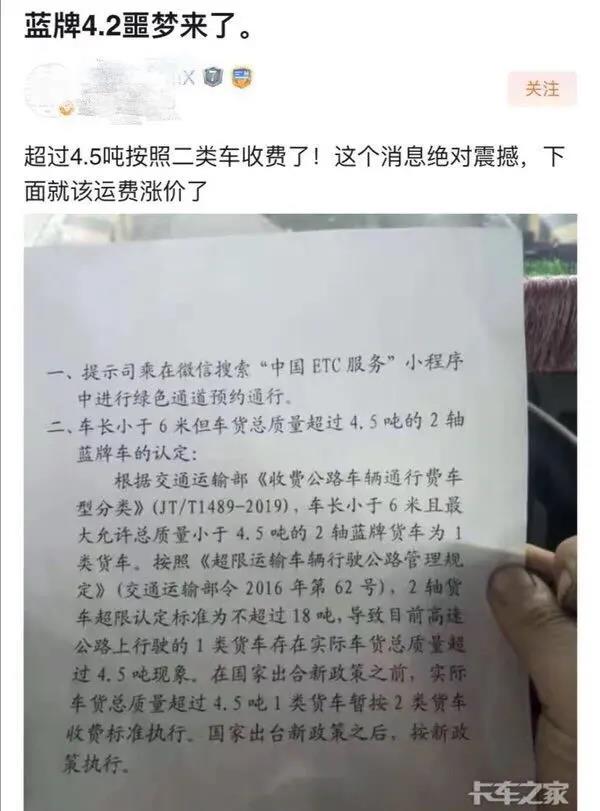 蓝牌4.2噩梦来了。
关注
超过4.5吨按照二类车收费了！这个消息绝对震撼，下
面就该运费涨价了
一、提示司乘在微信搜索“中国ETC服务”小程序
中进行绿色通道预约通行。
二、车长小于6米但车货总质量超过4.5吨的2轴
蓝牌车的认定：
根据交通运输部《收费公路车辆通行费车
型分类》(JT/T1489-2019)，车长小于6米且最
大允许总质量小于4.5吨的2轴蓝牌货车为1
类货车。按照《超限运输车辆行驶公路管理规
定》(交通运输部令2016年第62号)，2轴货
车超限认定标准为不超过18吨，导致目前高速
公路上行驶的1类货车存在实际车货总质量超
过4.5吨现象。在国家出台新政策之前，实际
车货总质量超过4.5吨1类货车暂按2类货车
收费标准执行。国家出台新政策之后，按新政
策执行。
卡车之家